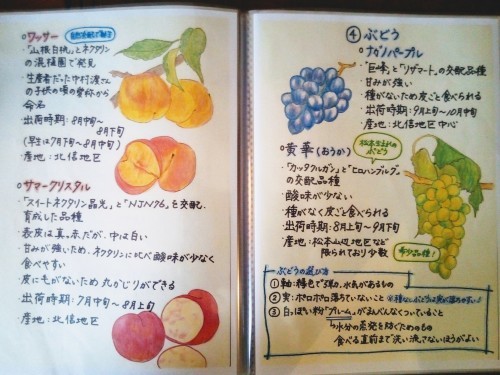 ○ワッサー 自然交配で誕生
・「山根白桃」とネクタリン
の混植園で発見
・生産者だった中村渡さん
の子供の頃の愛称から
命名
・出荷時期:8月中旬〜
8月下旬
(早生は7月下旬〜8月中旬)
・産地:北信地区
○サマークリスタル
・「スイートネクタリン晶光」と「NJN76」を交配、
育成した品種
・表皮は真っ赤だが、中は白い
・甘みが強いため、ネクタリンに比べ酸味が少なく
食べやすい
・皮に毛がないため丸かじりができる
・出荷時期:7月中旬〜8月上旬
・産地:北信地区
④ぶどう
○ナガノパープル
・「巨峰」と「リザマート」の交配品種
・甘みが強い
・種がないため皮ごと食べられる
・出荷時期:9月上旬〜10月中旬
・産地:北信地区中心
松本生まれの
ぶどう
○黄華(おうか)
・「カッタクルガン」と「ヒロハンブルグ」
の交配品種
・酸味が少ない
・種がなく皮ごと食べられる
・出荷時期:8月上旬〜9月下旬
・産地:松本山辺地区など
限られており少数
希少品種!
ぶどうの選び方
①軸:緑色で弾力、水気があるもの
②実:ポロポロ落ちていないこと ※種なしぶどうは実が落ちやすい
③白っぽい粉「ブルーム」がまんべんなくついていること
↳水分の蒸発を防ぐためのもの
食べる直前まで洗い流さないほうがよい